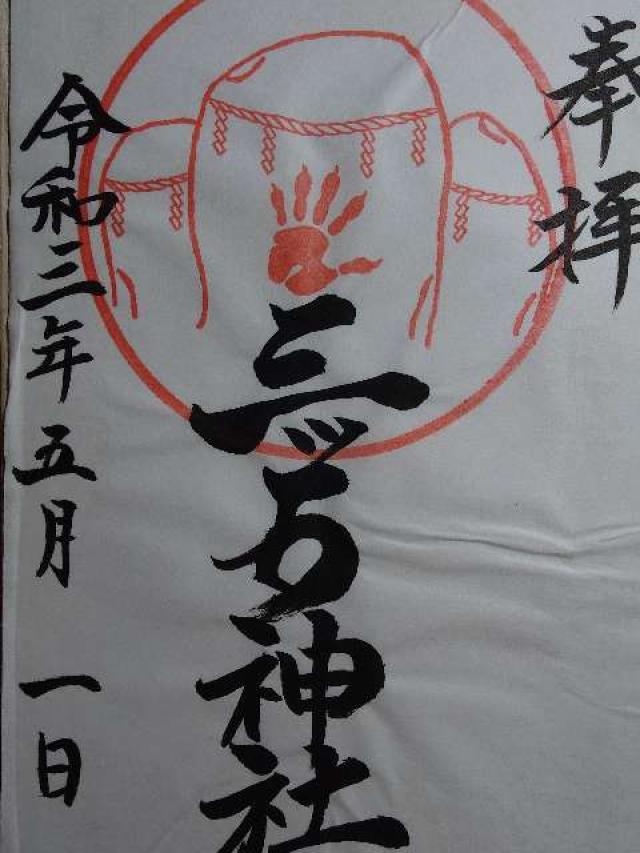 奉拝
三ッ石神社
令和三年五月 一日